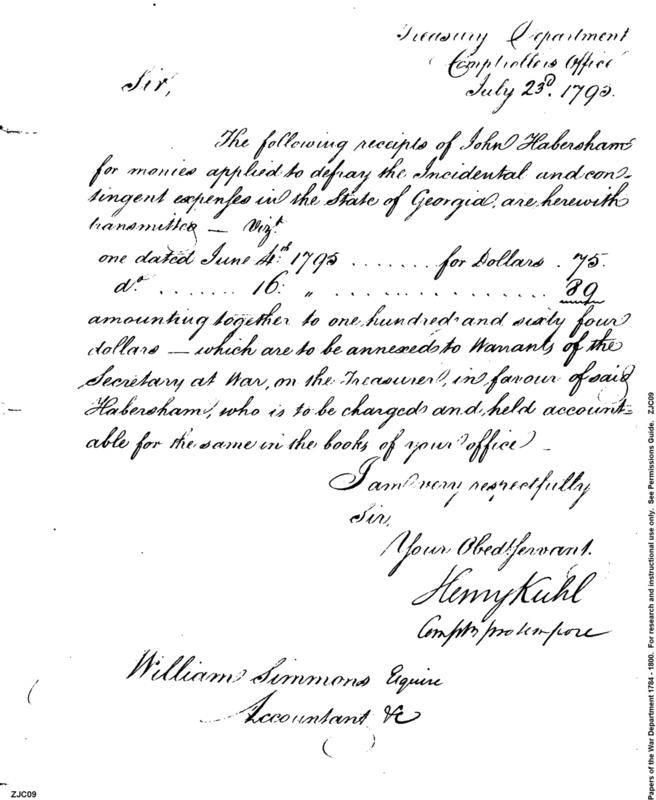 Treasury Department
Comptrollers Office
July 23d. 1795.
Sir,
The following receipts of John Habersham
for monies applied to defray the Incidental and con-
tingent expenses in the State of Georgia, are herewith
transmitted — Vizt
one dated June 4th 1795 ....... for Dollars . 75.
do ....... 16: „ .............. 89
amounting together to one hundred and sixty four
dollars — which are to be annexed to Warrants of the
Secretary at War, on the Treasurer, in favour of said
Habersham, who is to be charged and held account=
able for the same in the books of your office
I am very respectfully
Sir,
Your Obedt Servant.
Henry Kuhl
Comptr protempore
William Simmons Esquire
Accountant &c
ZJC09
Papers of the War Department 1784 - 1800. For research and instructional use only. See Permissions Guide. ZJC09